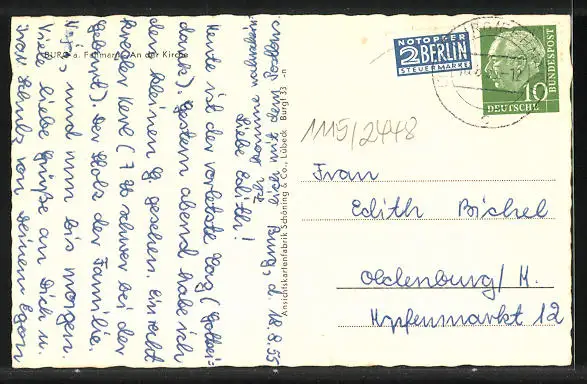 BURG a. Fehmarn. An der Kirche
Burg, d. 18.8.55
Liebe Edith!
Ich komme wahrschein-
lich mit dem
Heute ist der vorletzte Tag (Gottsei-
dank). Gestern abend habe ich
den kleinen G. gesehen. Ein
Kerl (7 schwer bei der
Geburt). Der Stolz der Familie.
Na ja, und nun bis morgen.
Viele liebe Grüße an Dich u.
Frau von Deinem Egon
Ansichtskartenfabrik Schöning & Co., Lübeck Burg1 33 -n
NOTOPFER
2 BERLIN
STEUERMARKE
DEUTSCHE
BUNDESPOST
10
1115/2448
Frau
Edith Bichel
Oldenburg/H.
Hopfenmarkt 12